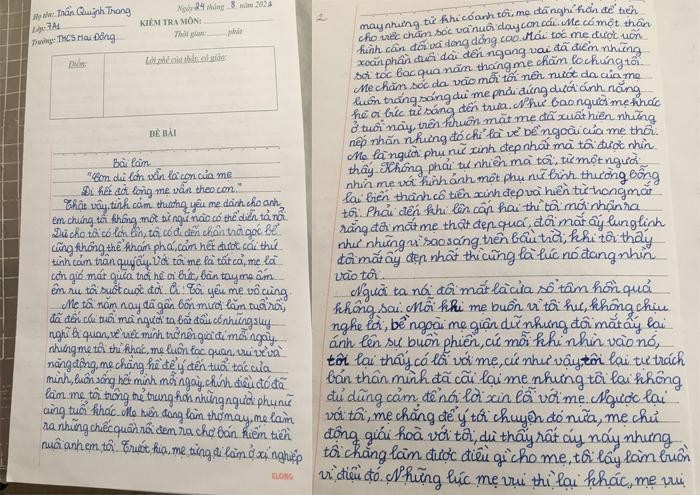 Họ tên: Trần Quỳnh Trang
Ngày 24 tháng 8 năm 2021
Lớp: 7A1
KIỂM TRA MÔN:
Trường: THCS Mai Động
Thời gian: phút
Điểm:
Lời phê của thầy, cô giáo:
ĐỀ BÀI
Bài làm
"Con dù lớn vẫn là con của mẹ
Đi hết đời lòng mẹ vẫn theo con."
Thật vậy, tình cảm thương yêu mẹ dành cho anh
em chúng tôi không một từ ngữ nào có thể diễn tả nổi.
Dù cho tôi có lớn lên, tôi có đi đến chân trời góc bể
cũng không thể khám phá, cảm hết được cái thứ
tình cảm trân quý ấy. Với tôi mẹ là tất cả, mẹ là
cơn gió mát giữa trời hè oi bức, bàn tay mẹ ôm
êm ru tôi suốt cuộc đời. Ôi! Tôi yêu mẹ vô cùng.
Mẹ tôi năm nay đã gần bốn mươi làm tuổi rồi,
đã đến cái tuổi mà người ta bắt đầu có những suy
nghĩ bi quan, về việc mình trở nên già đi mỗi ngày,
nhưng mẹ tôi thì khác, mẹ luôn lạc quan, vui vẻ và
năng động, mẹ chẳng hề để ý đến tuổi tác của
mình, luôn sống hết mình mỗi ngày, chính điều đó đã
làm mẹ tôi trông trẻ trung hơn những người phụ nữ
cùng tuổi khác. Mẹ hiện đang làm thợ may, mẹ làm
ra những chiếc quần rồi đem ra chợ bán kiếm tiền
nuôi anh em tôi. Trước kia, mẹ từng đi làm ở xí nghiệp
KLONG
2
may nhưng từ khi có anh tôi, mẹ đã nghỉ hẳn để tiện
cho việc chăm sóc và nuôi dạy con cái. Mẹ có một thân
hình cân đối và dong dỏng cao. Mái tóc mẹ được uốn
xoăn phần đuôi dài đến ngang vai đã điểm những
sợi tóc bạc qua năm tháng mẹ chăm lo chúng tôi.
Mẹ chăm sóc da vào mỗi tối nên nước da của mẹ
luôn trắng sáng dù mẹ phải đứng dưới ánh nắng
hè oi bức từ sáng đến trưa. Như bao người mẹ khác
ở tuổi này, trên khuôn mặt mẹ đã xuất hiện những
nếp nhăn nhưng đó chỉ là vẻ bề ngoài của mẹ thôi.
Mẹ là người phụ nữ xinh đẹp nhất mà tôi được nhìn
thấy. Không phải tự nhiên mà tôi, từ một người
nhìn mẹ với hình ảnh một phụ nữ bình thường bỗng
lại biến thành cô tiên xinh đẹp và hiền từ trong mắt
tôi. Phải đến khi lên cấp hai thì tôi mới nhận ra
rằng đôi mắt mẹ thật đẹp quá, đôi mắt ấy lung linh
như những vì sao sáng trên bầu trời, khi tôi thấy
đôi mắt ấy đẹp nhất thì cũng là lúc nó đang nhìn
vào tôi.
Người ta nói đôi mắt là cửa sổ tâm hồn quả
không sai. Mỗi khi mẹ buồn vì tôi hư, không chịu
nghe lời, bề ngoài mẹ giận dữ nhưng đôi mắt ấy lại
ánh lên sự buồn phiền, cứ mỗi khi nhìn vào nó,
tôi lại thấy có lỗi với mẹ, cứ như vậy tôi lại tự trách
bản thân mình đã cãi lại mẹ nhưng tôi lại không
đủ dũng cảm để nói lời xin lỗi với mẹ. Ngược lại
với tôi, mẹ chẳng để ý tới chuyện đó nữa, mẹ chủ
động giải hoà với tôi, dù thấy rất cáy náy nhưng
tôi chẳng làm được điều gì cho mẹ, tôi lấy làm buồn
vì điều đó. Những lúc mẹ vui thì lại khác, mẹ vui